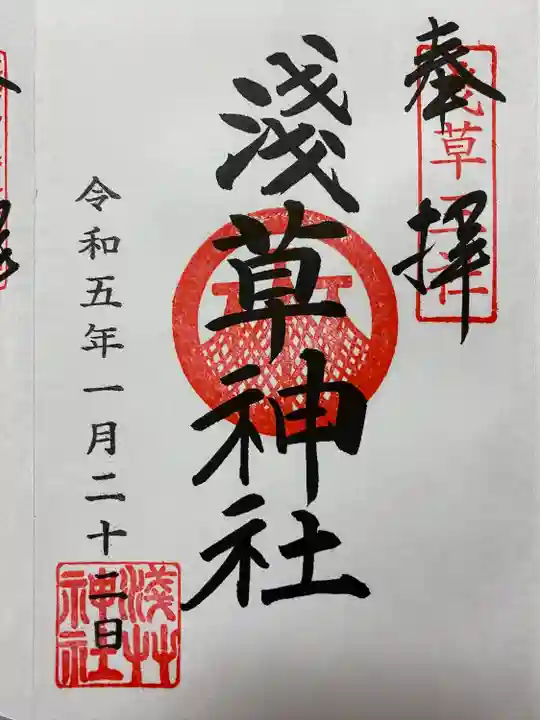 奉拝
浅草名社
淺草神社
令和五年一月二十二日
淺草神社